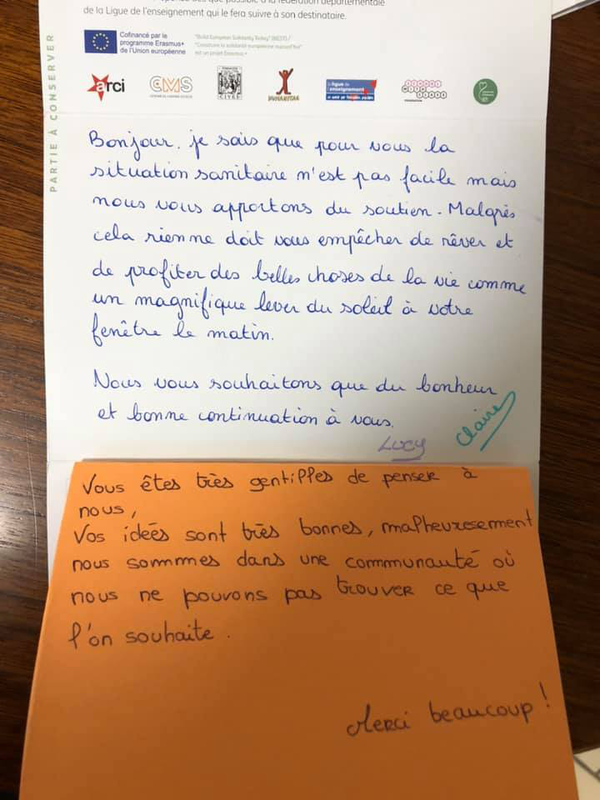 de la Ligue de l'enseignement qui le fera suivre à son destinataire.
PARTIE À CONSERVER
Cofinancé par le
programme Erasmus+
de l'Union européenne
arci
CMS
la ligue de
l'enseignement
Bonjour, je sais que pour vous la
situation sanitaire n'est pas facile mais
nous vous apportons du soutien. Malgrés
cela rien ne doit vous empêcher de rêver et
de profiter des belles choses de la vie comme
un magnifique lever du soleil à votre
fenêtre le matin.
Nous vous souhaitons que du bonheur
et bonne continuation à vous.
Lucy
Claire
Vous êtes très gentilles de penser à
nous,
Vos idées sont très bonnes, malheuresement
nous sommes dans une communauté où
nous ne pouvons pas trouver ce que
l'on souhaite.
Merci beaucoup!